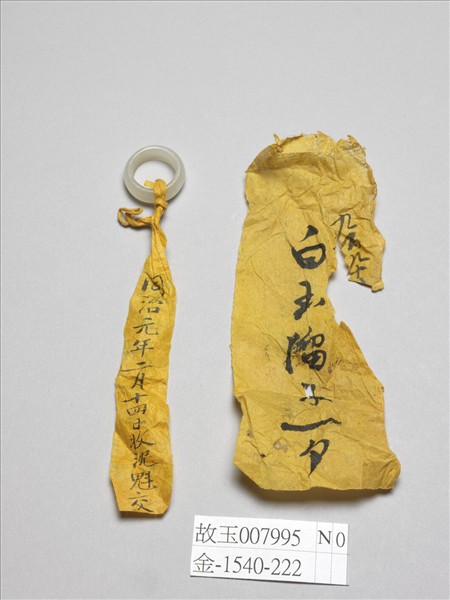 同治元年二月十四日收沈魁交
白玉溜子一个
故玉007995 N0
金-1540-222